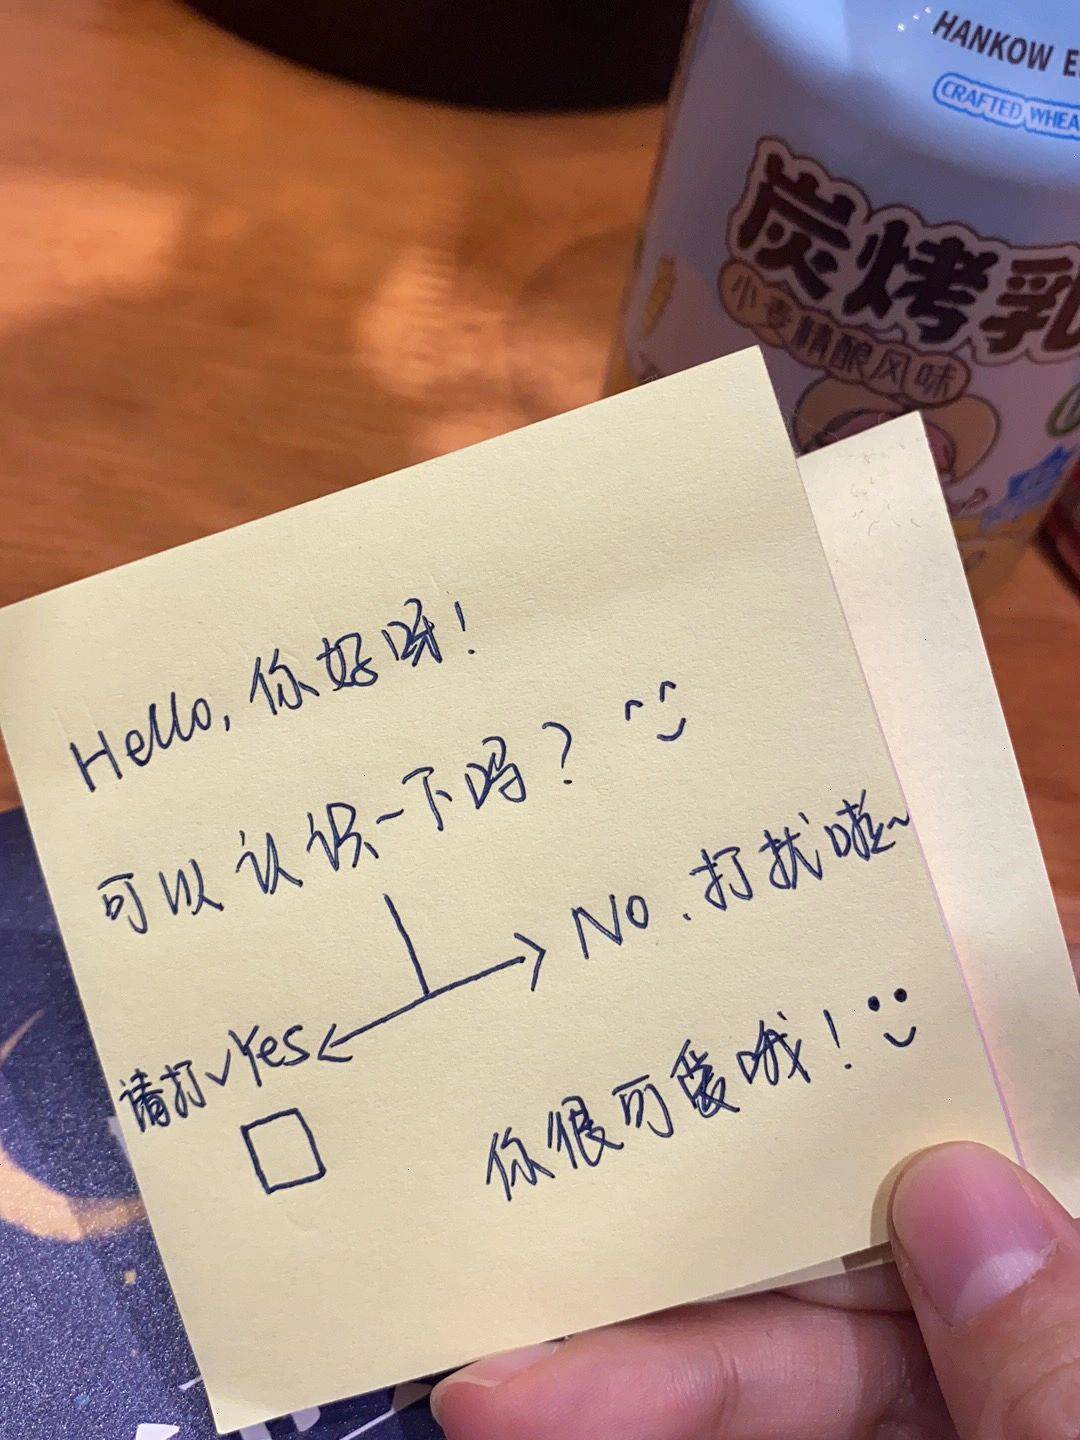 HANKOW E
CRAFTED WHEA
炭烤乳
小麦精酿风味
Hello, 你好呀!
可以认识一下吗?
No. 打扰啦~
请打✓Yes
你很可爱哦!